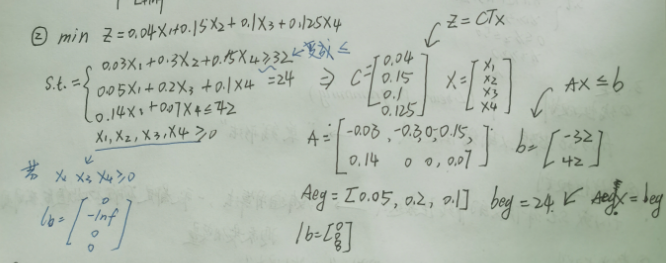 ② min Z=0.04X1+0.15X2+0.1X3+0.125X4
Z=CTx
s.t.={ 0.03X1+0.3X2+0.15X4≥32 ←要改≤
0.05X1+0.2X3+0.1X4=24
0.14X1+0.07X4≤42
X1,X2,X3,X4≥0
⇒ C=[0.04
0.15
0.1
0.125]
X=[X1
X2
X3
X4]
AX≤b
A=[-0.03, -0.3,0,-0.15,
0.14 0 0,0.07]
b=[-32
42]
若 X1 X3 X4≥0
lb=[0
-Inf
0
0]
Aeg=[0.05,0.2,0.1] beg=24 ↙ AegX=beg
lb=[0
0
0]